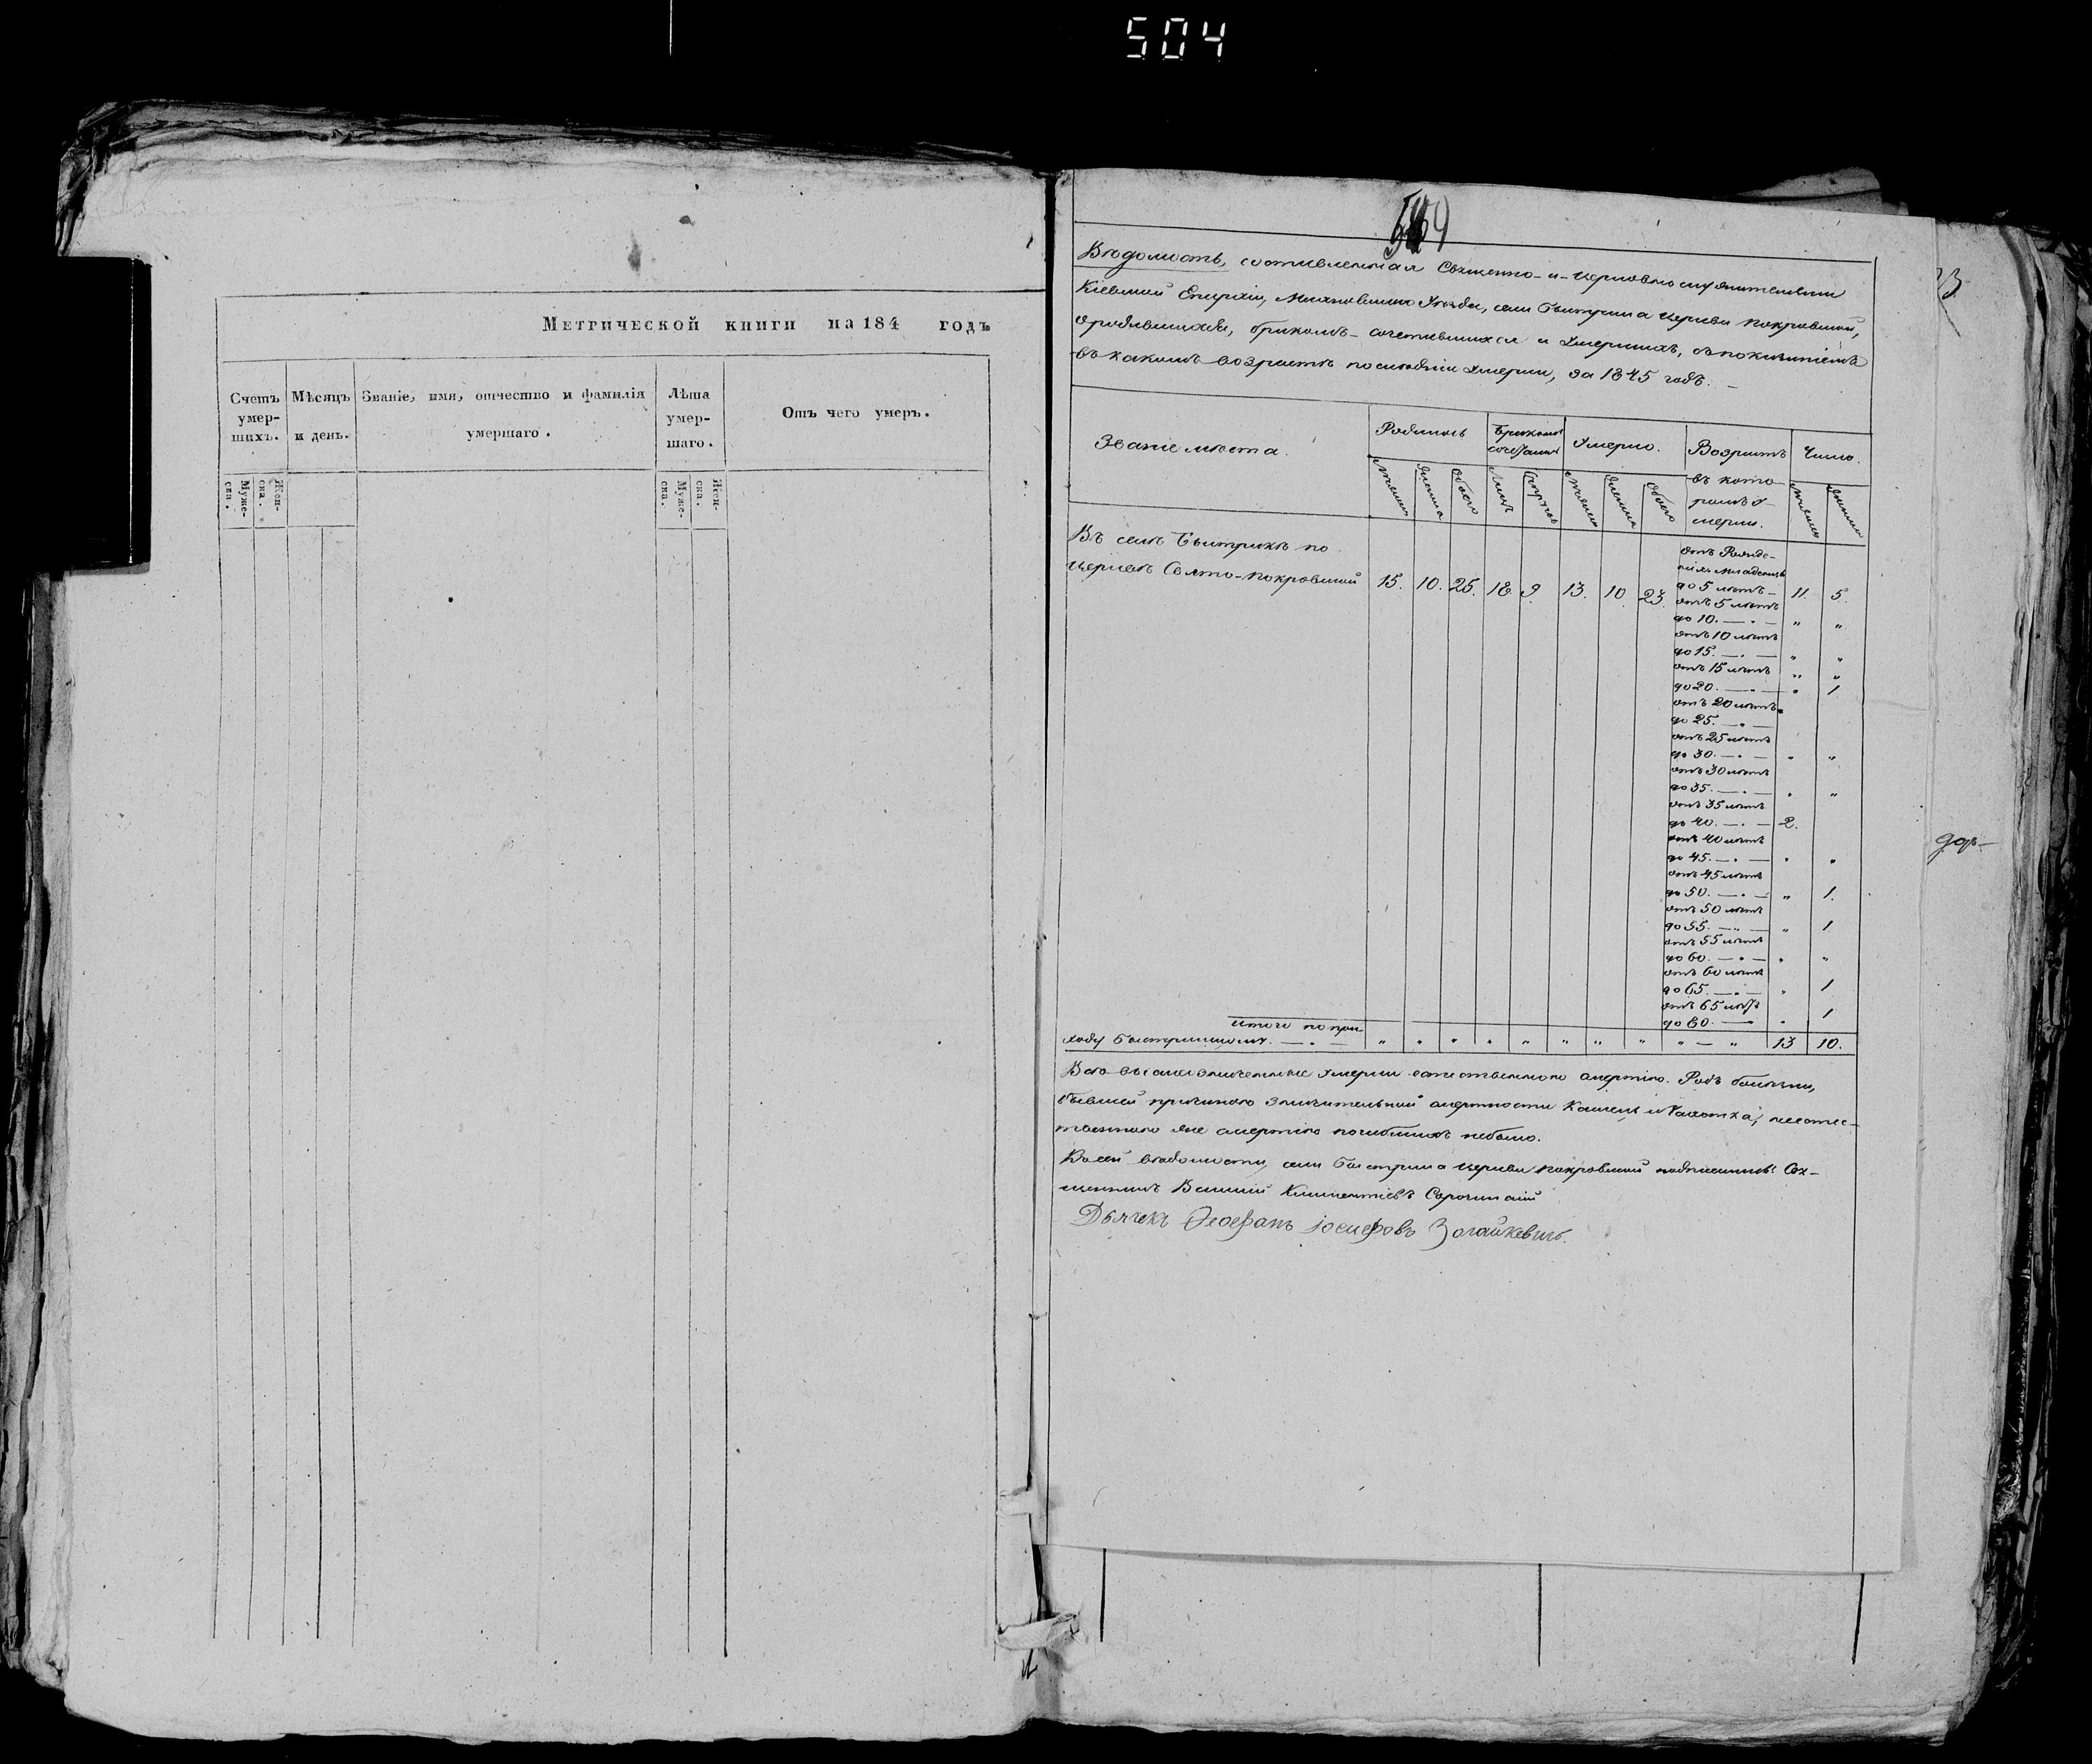 504
Метрической книги на 184 годъ
Счетъ умер-шихъ. Мѣсяцъ и день. Званіе, имя, отчество и фамилія умершаго. Лѣта умер-шаго. Отъ чего умеръ.
Муже-ска. Жен-ска. Муже-ска. Жен-ска.
Вѣдомость, составленная Священно-и-церковнослужителями
Кіевской Епархіи, Уѣзда, села Быстрика церкви Покровской,
о родившихся, бракомъ-сочетавшихся и умершихъ, съ показаніемъ
въ какомъ возрастѣ послѣдніи умерли, за 1845 годъ. –
Званіе мѣста. Родилось Бракомъ сочетались Умерло. Возрастъ Число.
въ кото-
ромъ у-
мерли.
Въ селѣ Быстрикѣ по
церквѣ Свято-Покровской 15. 10. 25. 18. 9. 13. 10. 23.
отъ Рожде-
нія младенцъ
до 5 лѣтъ – 11. 5.
отъ 5 лѣтъ
до 10. — „ — „ „
отъ 10 лѣтъ
до 15. — „ — „ „
отъ 15 лѣтъ „ „
до 20. — „ — „ 1
отъ 20 лѣтъ
до 25. — „ —
отъ 25 лѣтъ
до 30. — „ — „ „
отъ 30 лѣтъ
до 35. — „ — „ „
отъ 35 лѣтъ
до 40. — „ — 2.
отъ 40 лѣтъ
до 45. — „ — „ „
отъ 45 лѣтъ
до 50. — „ — „ 1.
отъ 50 лѣтъ
до 55. — „ — „ 1
отъ 55 лѣтъ
до 60. — „ — „ „
отъ 60 лѣтъ
до 65. — „ — „ 1
отъ 65 лѣтъ
до 80. — „ 1
итого по при-
ходу Быстрицкому. — „ — „ „ „ „ „ „ „ „ „ — „ 13 10.
Всѣ вышеозначенные умерли естественною смертію. Родъ болѣзни,
бывшей причиною значительной смертности Кашель и Чахотка; неестес-
твенною же смертію погибшихъ небыло.
Къ сей вѣдомости, села Быстрика церкви Покровской подписались: Свя-
щенникъ Климентіевъ
Дьячекъ Ѳеофанъ Іосифовъ